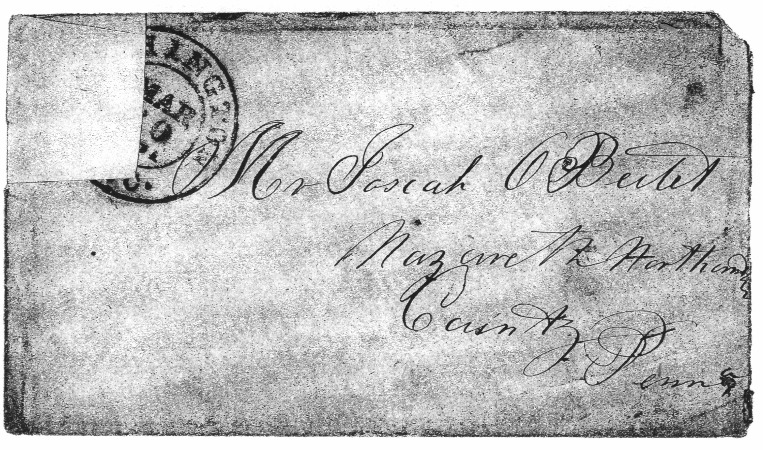 HINGTON
MAR
Mr Josiah O Beitel
Nazareth Northam
County
Penn